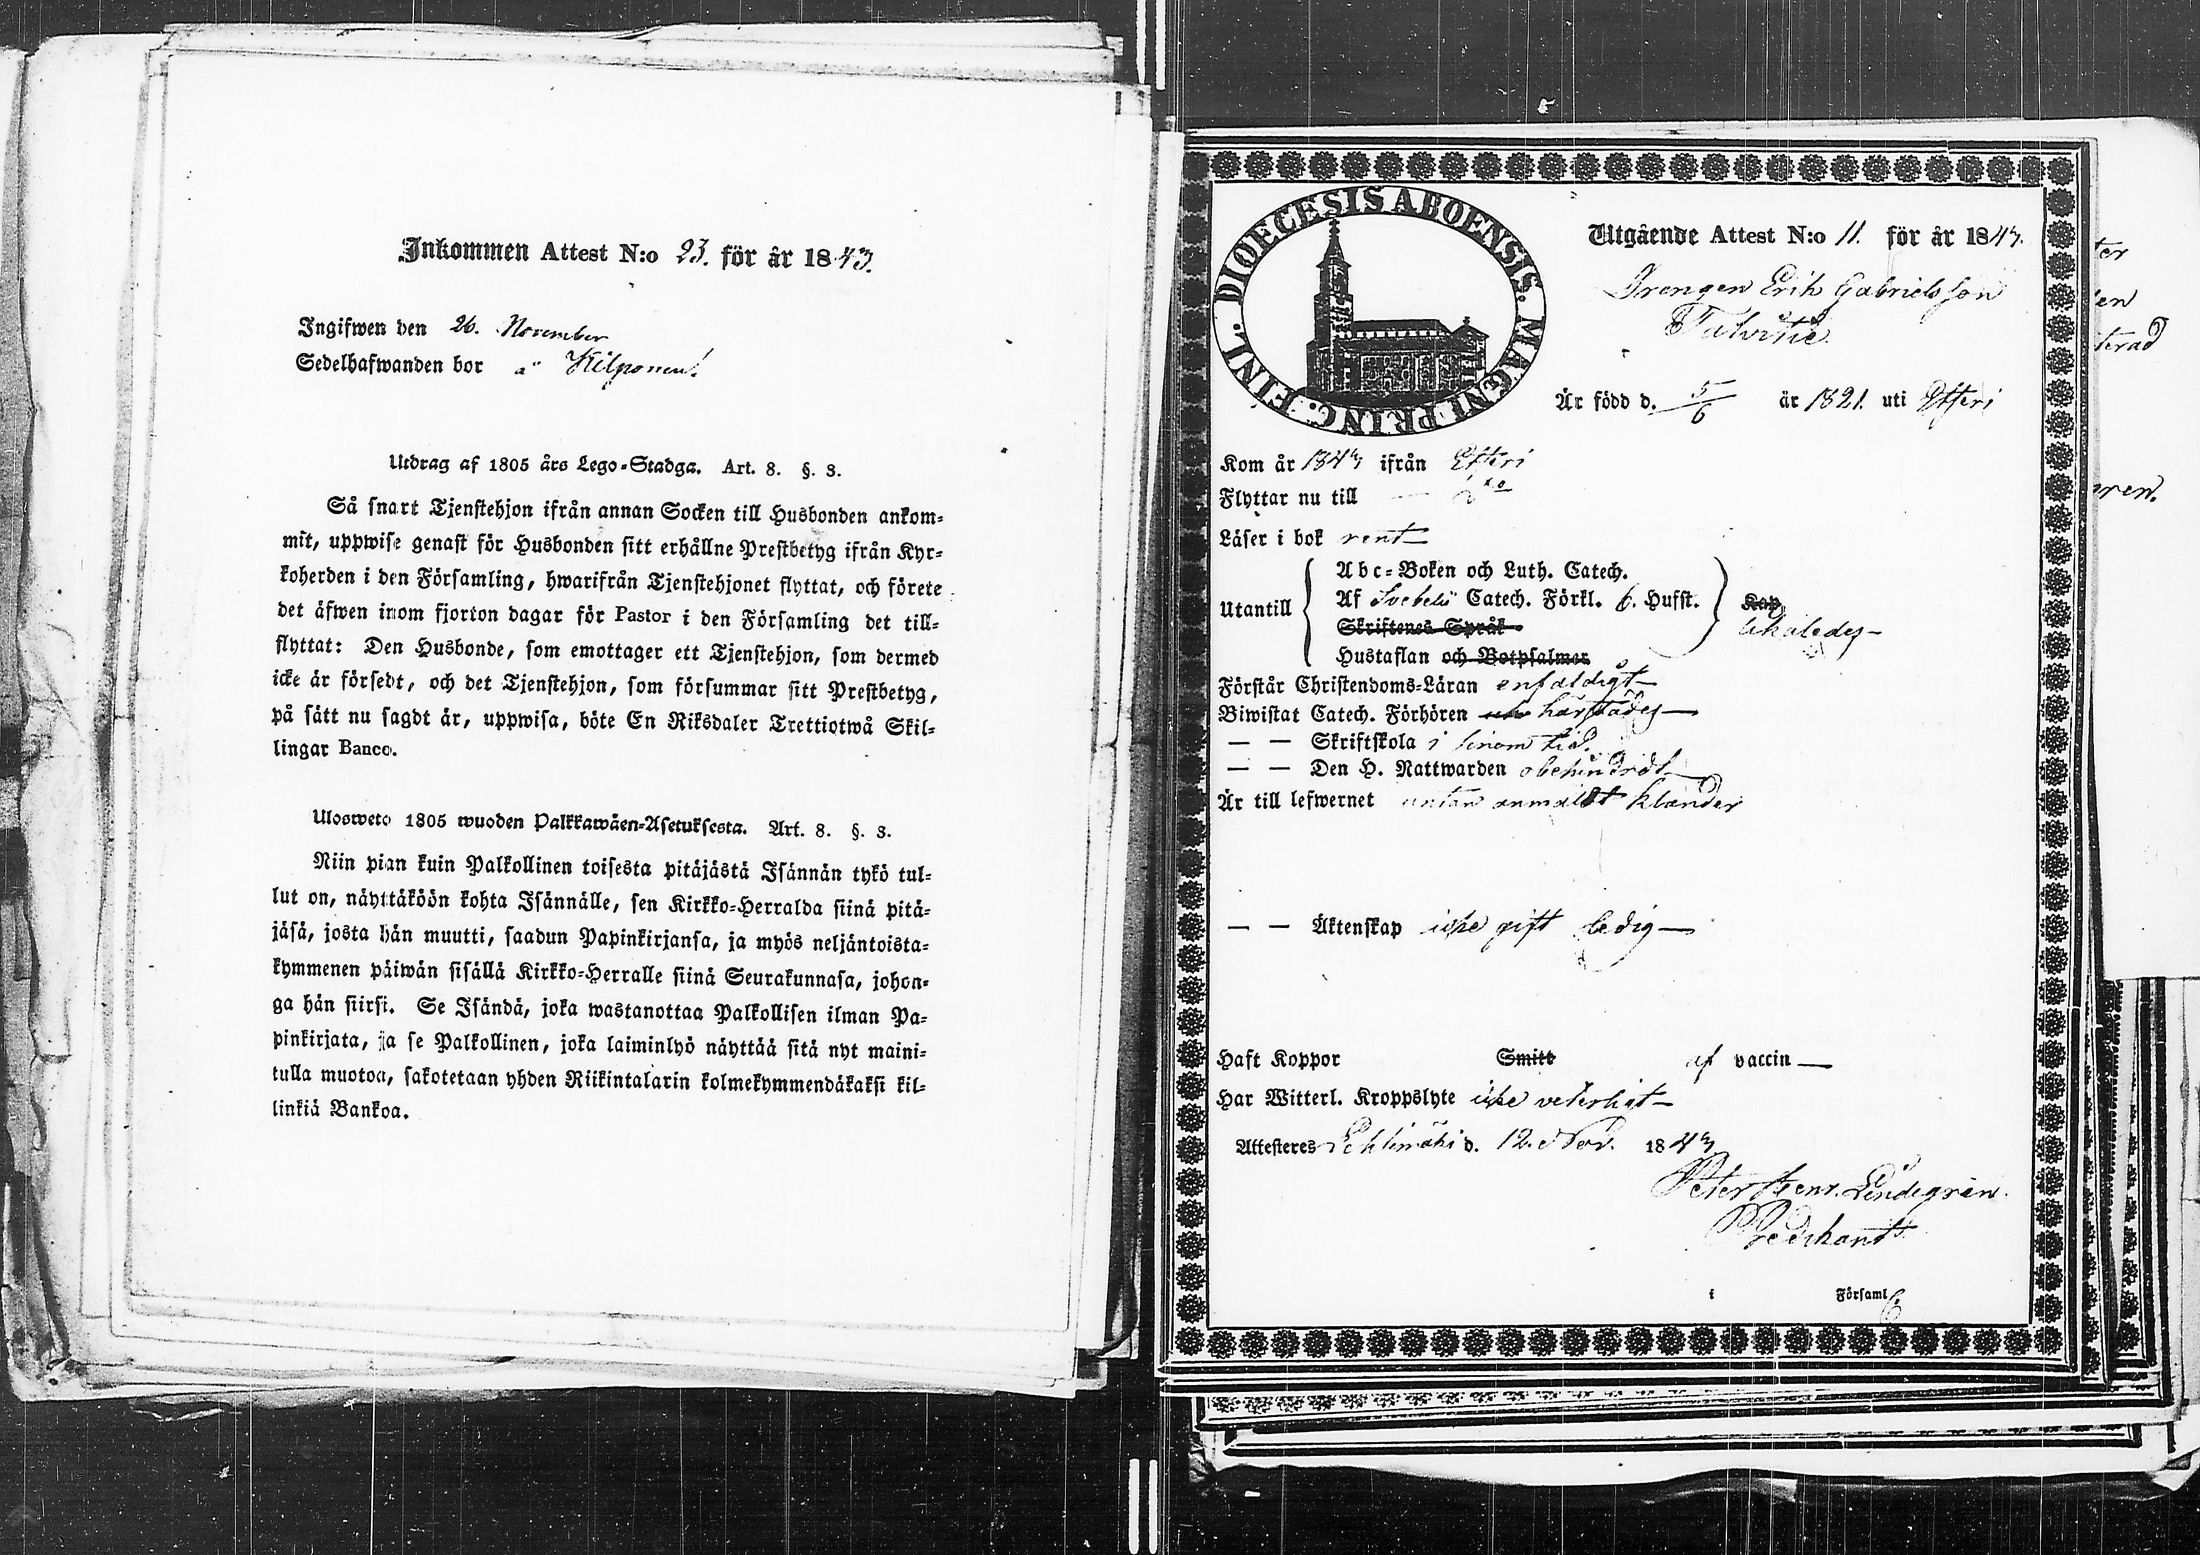 Inkommen Attest N:o 23. för år 1843.
Ingifwen den 26. November
Sedelhafwanden bor å Kilponen!
Utdrag af 1805 års Lego-Stadga. Art. 8. §. 3.
Så snart Tjenstehjon ifrån annan Socken till Husbonden ankom-
mit, uppwise genast för Husbonden sitt erhållne Prestbetyg ifrån Kyr-
koherden i den Församling, hwarifrån Tjenstehjonet flyttat, och förete
det äfwen inom fjorton dagar för Pastor i den Församling det till-
flyttat: Den Husbonde, som emottager ett Tjenstehjon, som dermed
icke är försedt, och det Tjenstehjon, som försummar sitt Prestbetyg,
på sätt nu sagdt är, uppwisa, böte En Riksdaler Trettiotwå Skil-
lingar Banco.
Ulosweto 1805 wuoden Palkkawäen-Asetuksesta. Art. 8. §. 3.
Niin pian kuin Palkollinen toisesta pitäjästä Isännän tykö tul-
lut on, näyttäköön kohta Isännälle, sen Kirkko-Herralda siinä pitä-
jäsä, josta hän muutti, saadun Papinkirjansa, ja myös neljäntoista-
kymmenen päiwän sisällä Kirkko-Herralle siinä Seurakunnasa, johon-
ga hän siirsi. Se Isändä, joka wastanottaa Palkollisen ilman Pa-
pinkirjata, ja se Palkollinen, joka laiminlyö näyttää sitä nyt maini-
tulla muotoa, sakotetaan yhden Riikintalarin kolmekymmendäkaksi kil-
linkiä Bankoa.
DIOECESIS ABOENSIS. MAGNI PRINC. FINL.
Utgående Attest N:o 11. för år 1843.
Drengen Erik Gabrielsson
Talvitie
Är född d. 5/6 år 1821. uti Etseri
Kom år 1843 ifrån Etseri
Flyttar nu till — d:o
Läser i bok rent
Abc-Boken och Luth. Catech.
Utantill Af Svebelii Catech. Förkl. 6. Hufst. Kap.
Skriftenes Språk likaledes
Hustaflan och Botpsalmer
Förstår Christendoms-Läran enfaldigt
Biwistat Catech. Förhören härstädes
— — Skriftskola i sinom tid.
— — Den H. Nattwarden obehindradt
Är till lefwernet utan anmäldt klander
— — Äktenskap icke gift ledig
Haft Koppor Smitt af vaccin
Har Witterl. Kroppslyte icke veterligt
Attesteres Pehlimäki d. 12. Nov. 1843
Peter Henr. Lindegrén.
Predikant.
i Församl.
ter
en
terad
ren.